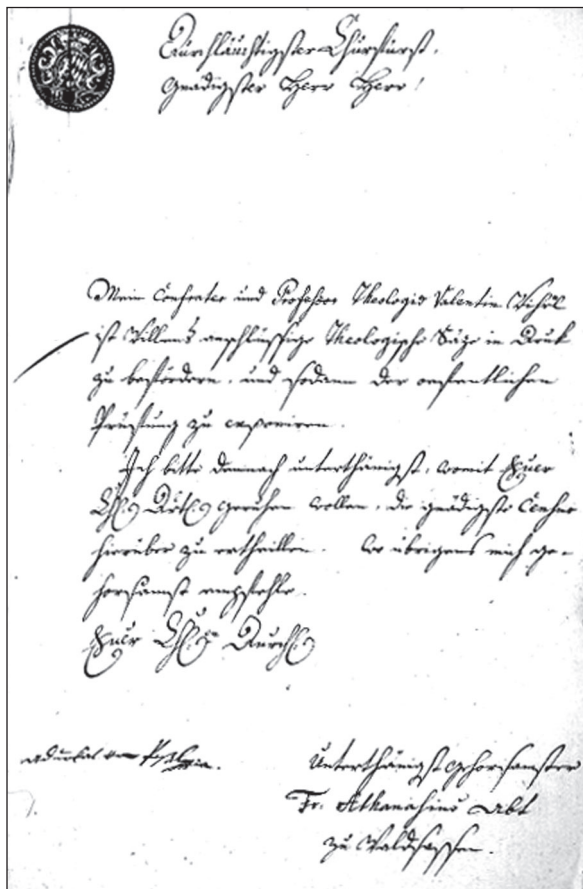 Durchläuchtigster Churfürst,
Gnädigster Herr Herr!
Mein Confrater und Professor Theologiæ Valentin
ist Willens anschlüssige Theologische Säze in Druk
zu befördern, und sodann der oeffentlichen
Prüffung zu exponiren.
Ich bitte demnach unterthänigst, womit Euer
Chf. Drtl. geruhen wollen, die gnädigste Censur
hierüber zu ertheillen. Wo übrigens mich ge-
horsamst empfehle.
Euer Chf. Durchl.
Unterthänigst gehorsamster
Fr. Athanasius Abt
zu Waldsassen.